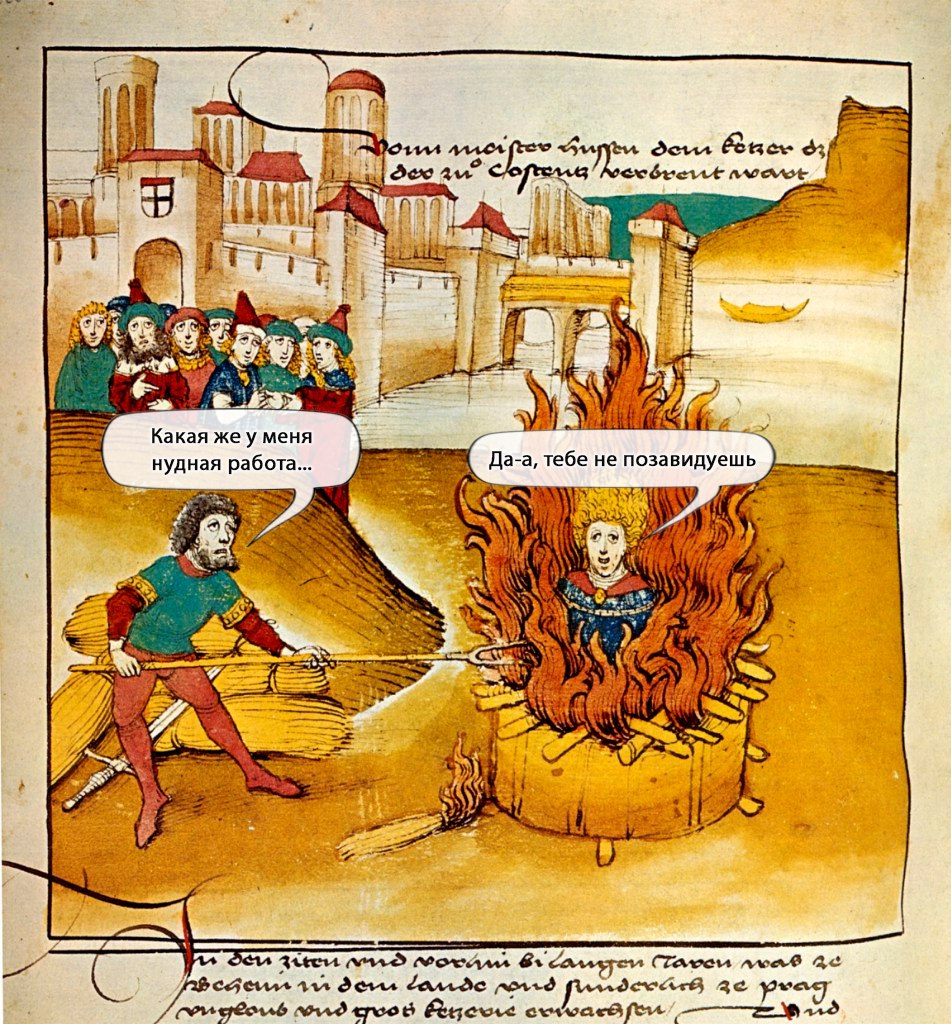 vonn meister hussen dem ketzer dz
der zů Costentz verbrent wart
Какая же у меня
нудная работа...
Да-а, тебе не позавидуешь
In den ziten vnd vorhin bi langen Jaren was ze
Behem in dem lande vnd sunderlich ze prag
vngloub vnd gros ketzerie erwachsen Vnd